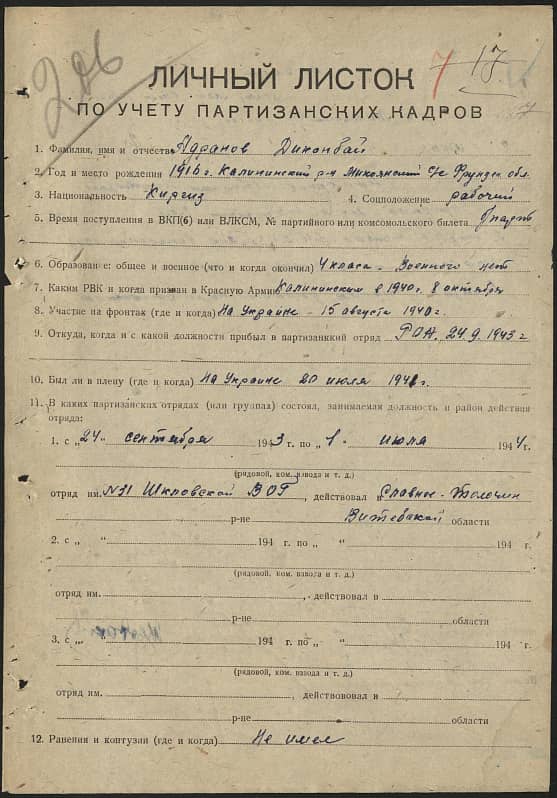 206
7 17
ЛИЧНЫЙ ЛИСТОК
ПО УЧЕТУ ПАРТИЗАНСКИХ КАДРОВ
1. Фамилия, имя и отчество Адранов
2. Год и место рождения 1916 г. Калининский р-н Микоянский с/с Фрунзен. обл.
3. Национальность Киргиз 4. Соцположение рабочий
5. Время поступления в ВКП(б) или ВЛКСМ, № партийного или комсомольского билета б/парт
6. Образование: общее и военное (что и когда окончил) 4 класа. Военного нет
7. Каким РВК и когда призван в Красную Армию Калининским в 1940 г. 8 октября
8. Участие на фронтах (где и когда) На Украине - 15 августа 194 г.
9. Откуда, когда и с какой должности прибыл в партизанский отряд РОА. 24. 9. 1943 г
10. Был ли в плену (где и когда) На Украине 20 июля 1941 г.
11. В каких партизанских отрядах (или группах) состоял, занимаемая должность и район действия
отряда:
1. с „24" сентября 1943 г. по „1" июля 1944 г.
(рядовой, ком. взвода и т. д.)
отряд им. №31 Шкловской ВОГ, действовал в Славное-Толочин
р-не Витебской области
2. с „ " 194 г. по „ " 194 г.
(рядовой, ком. взвода и т. д.)
отряд им. , действовал в
р-не области
3. с „ " 194 г. по „ " 194 г.
(рядовой, ком. взвода и т. д.)
отряд им. , действововал в
р-не области
12. Равения и контузии (где и когда) Не имел